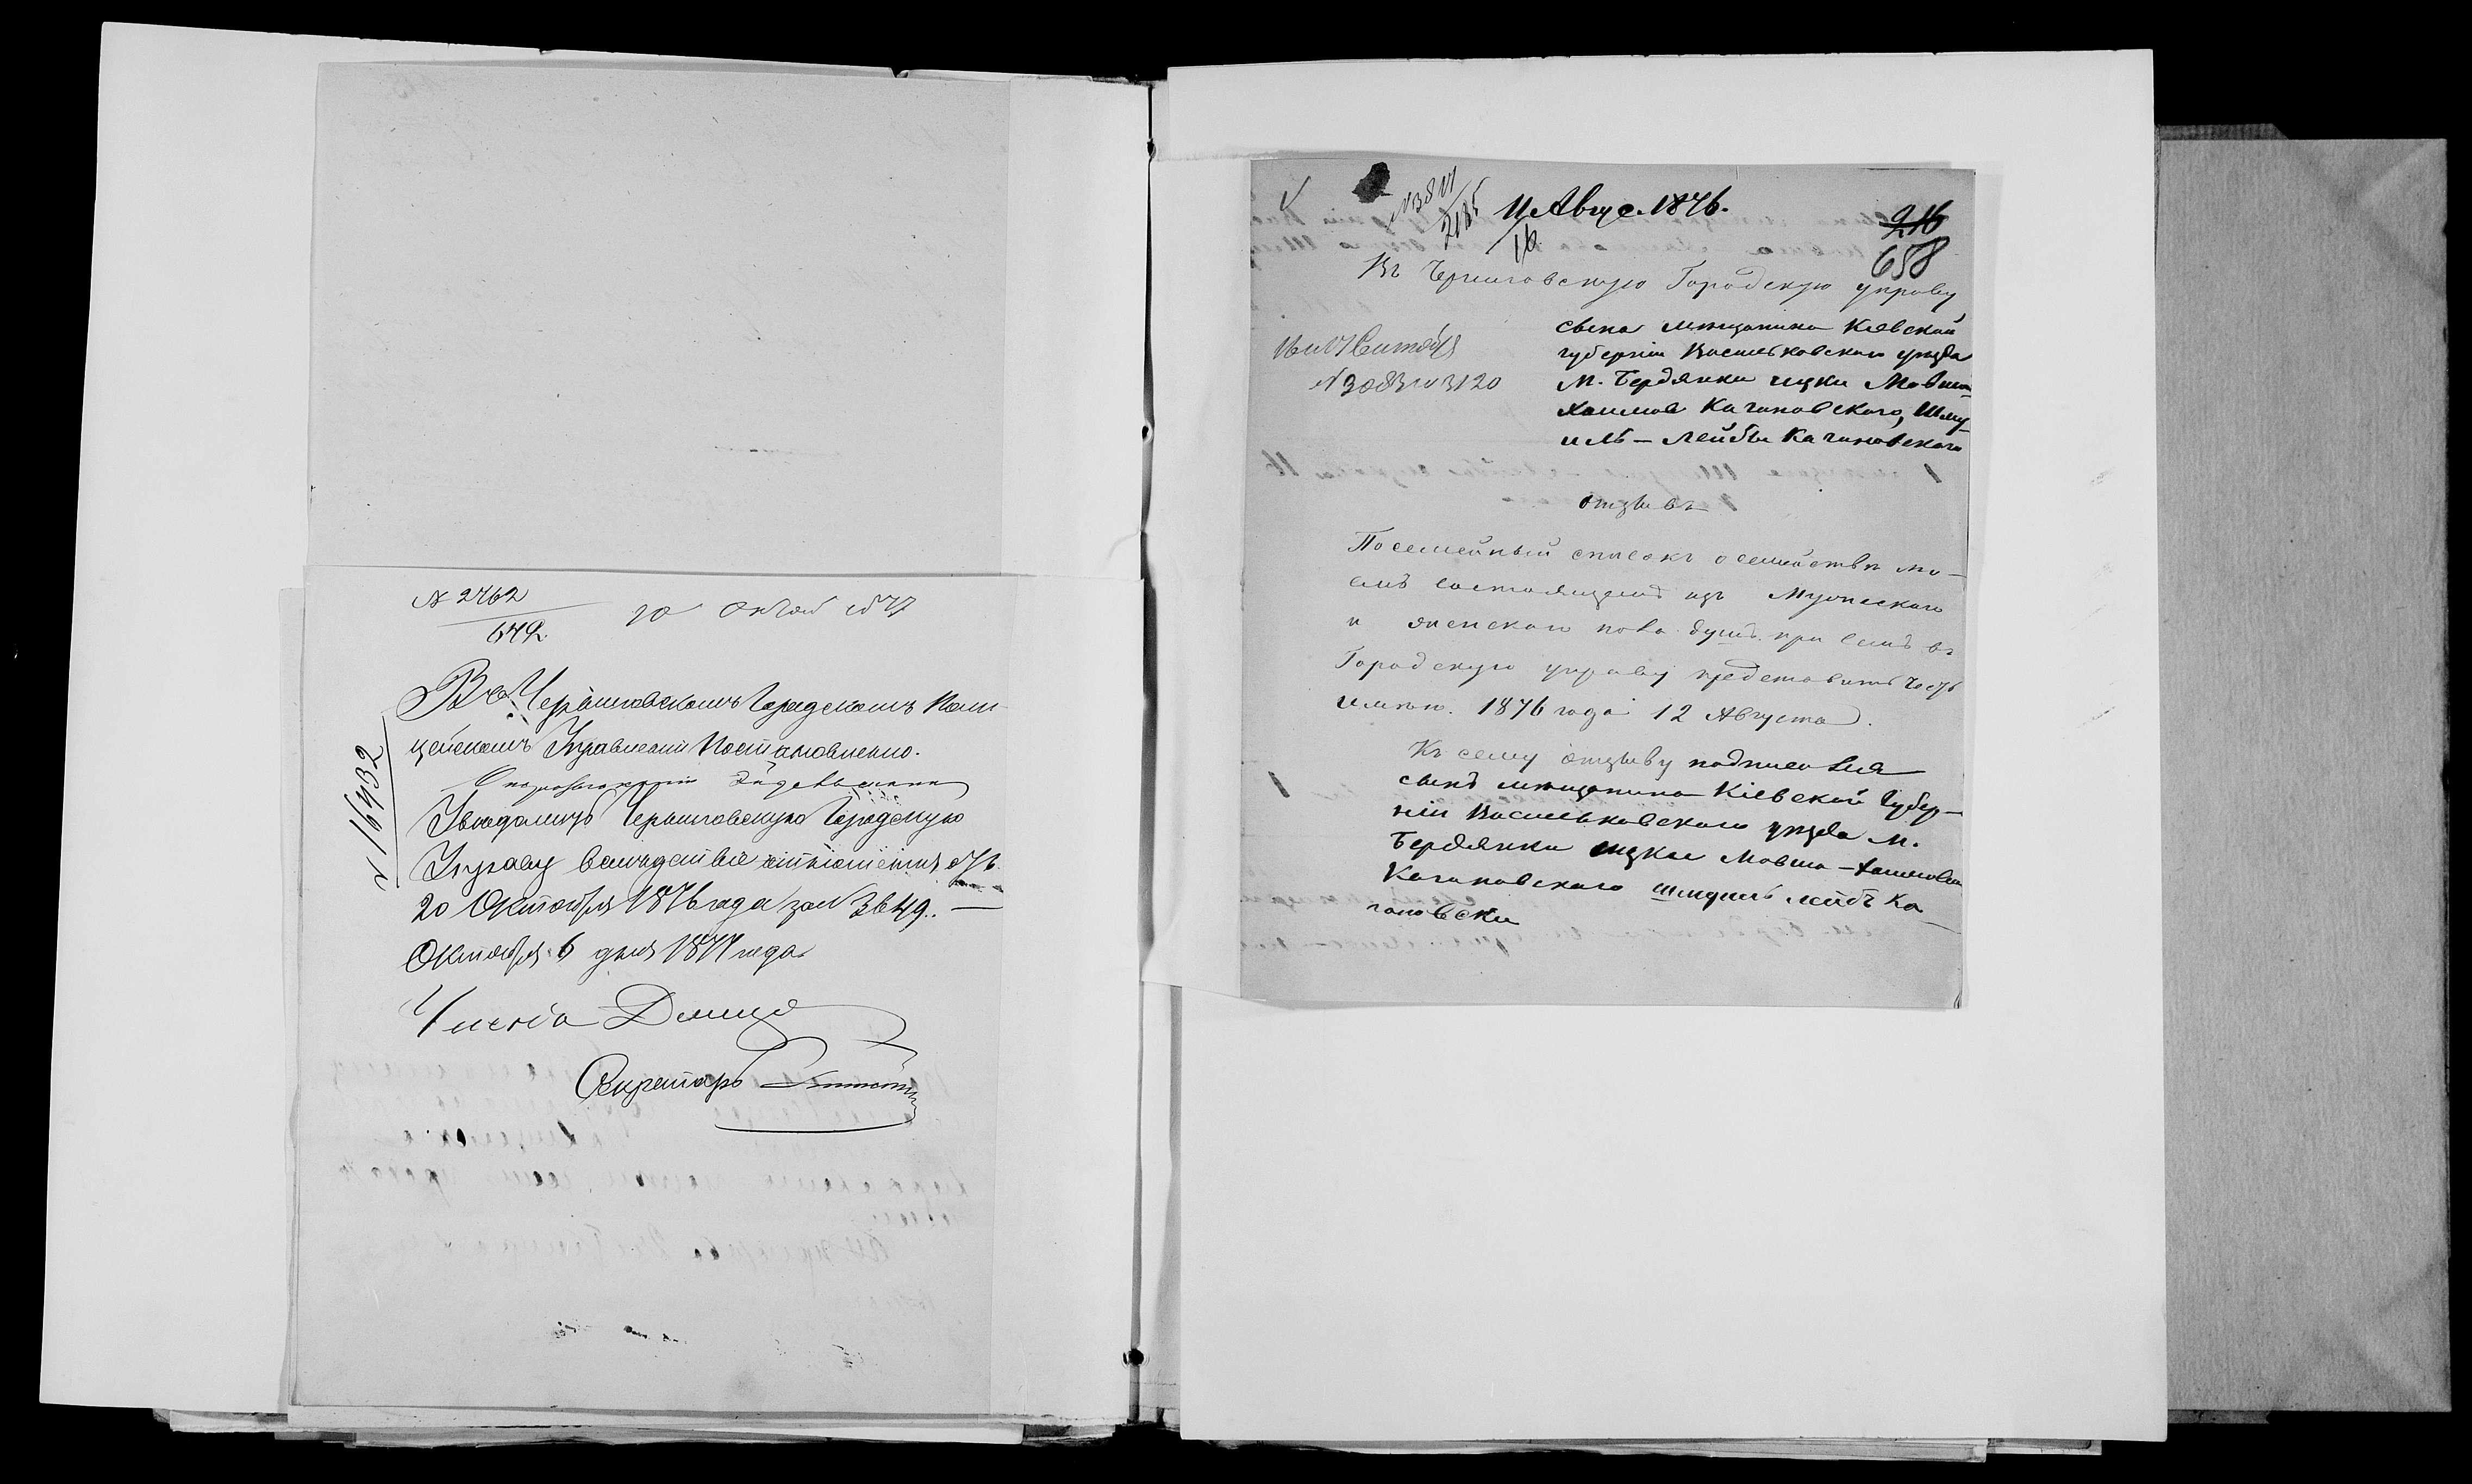 № 2762
642
20 Октяб 1877
Въ Черниговскомъ Городскомъ Поли-
цейскомъ Управленіи Постановлено.
№ 16432
Увѣдомить Черниговскую Городскую
Управу вслѣдствіе отношенія отъ
20 Октября 1876 года за № 3649. —
Октября 6 дня 1877 года
Секретарь
№ 3811
2185
11 Авгус. 1876.
16
216
658
Въ Черниговскую Городскую управу
сына мещанина Кіевской
губерніи Васильковскаго уѣзда
м. Бердянки ицки Мовша-
Хаимов Кагановского, Шму-
иль – Лейбы Кагановского
16 и 17 Сентября
№ 3083 и 3120
отзывъ
Посемейный списокъ о семействѣ мо-
емъ состоящемъ изъ Мужескаго
и женскаго пола душъ при семъ въ
Городскую управу представить честь
имѣю. 1876 года 12 Августа.
Къ сему отзыву подписался
сынъ мещанина Кіевской Губер-
ніи Васильковскаго уезда м.
Бердянки ицки Мовша – Хаимова
Кагановского шмуиль лейбъ Ка-
гановски